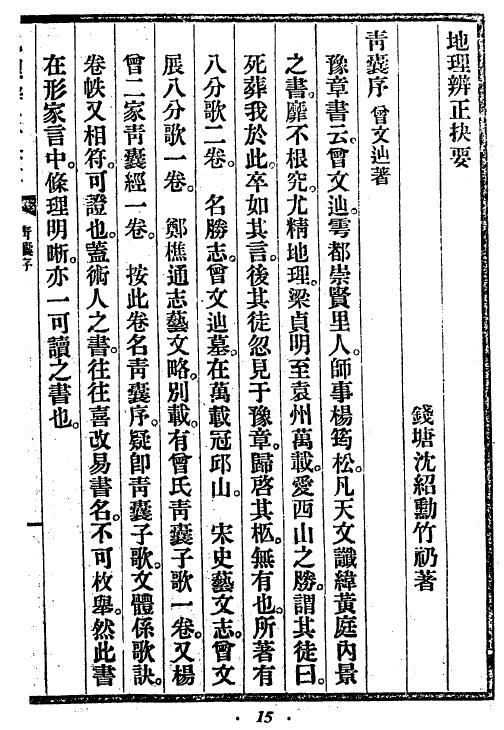 地理辨正抉要
錢塘沈紹勳竹礽著
青囊序 曾文辿著
豫章書云。曾文辿。雩都崇賢里人。師事楊筠松。凡天文讖緯黃庭內景
之書。靡不根究。尤精地理。梁貞明至袁州萬載。愛西山之勝。謂其徒曰。
死葬我於此。卒如其言。後其徒忽見于豫章。歸啓其柩。無有也。所著有
八分歌二卷。 名勝志。曾文辿墓。在萬載冠邱山。 宋史藝文志。曾文
展八分歌一卷。 鄭樵通志藝文略。別載。有曾氏靑囊子歌一卷。又楊
曾二家靑囊經一卷。 按此卷名靑囊序。疑卽靑囊子歌。文體係歌訣。
卷帙又相符。可證也。蓋術人之書。往往喜改易書名。不可枚舉。然此書
在形家言中。條理明晰。亦一可讀之書也。
青囊序
· 15 ·